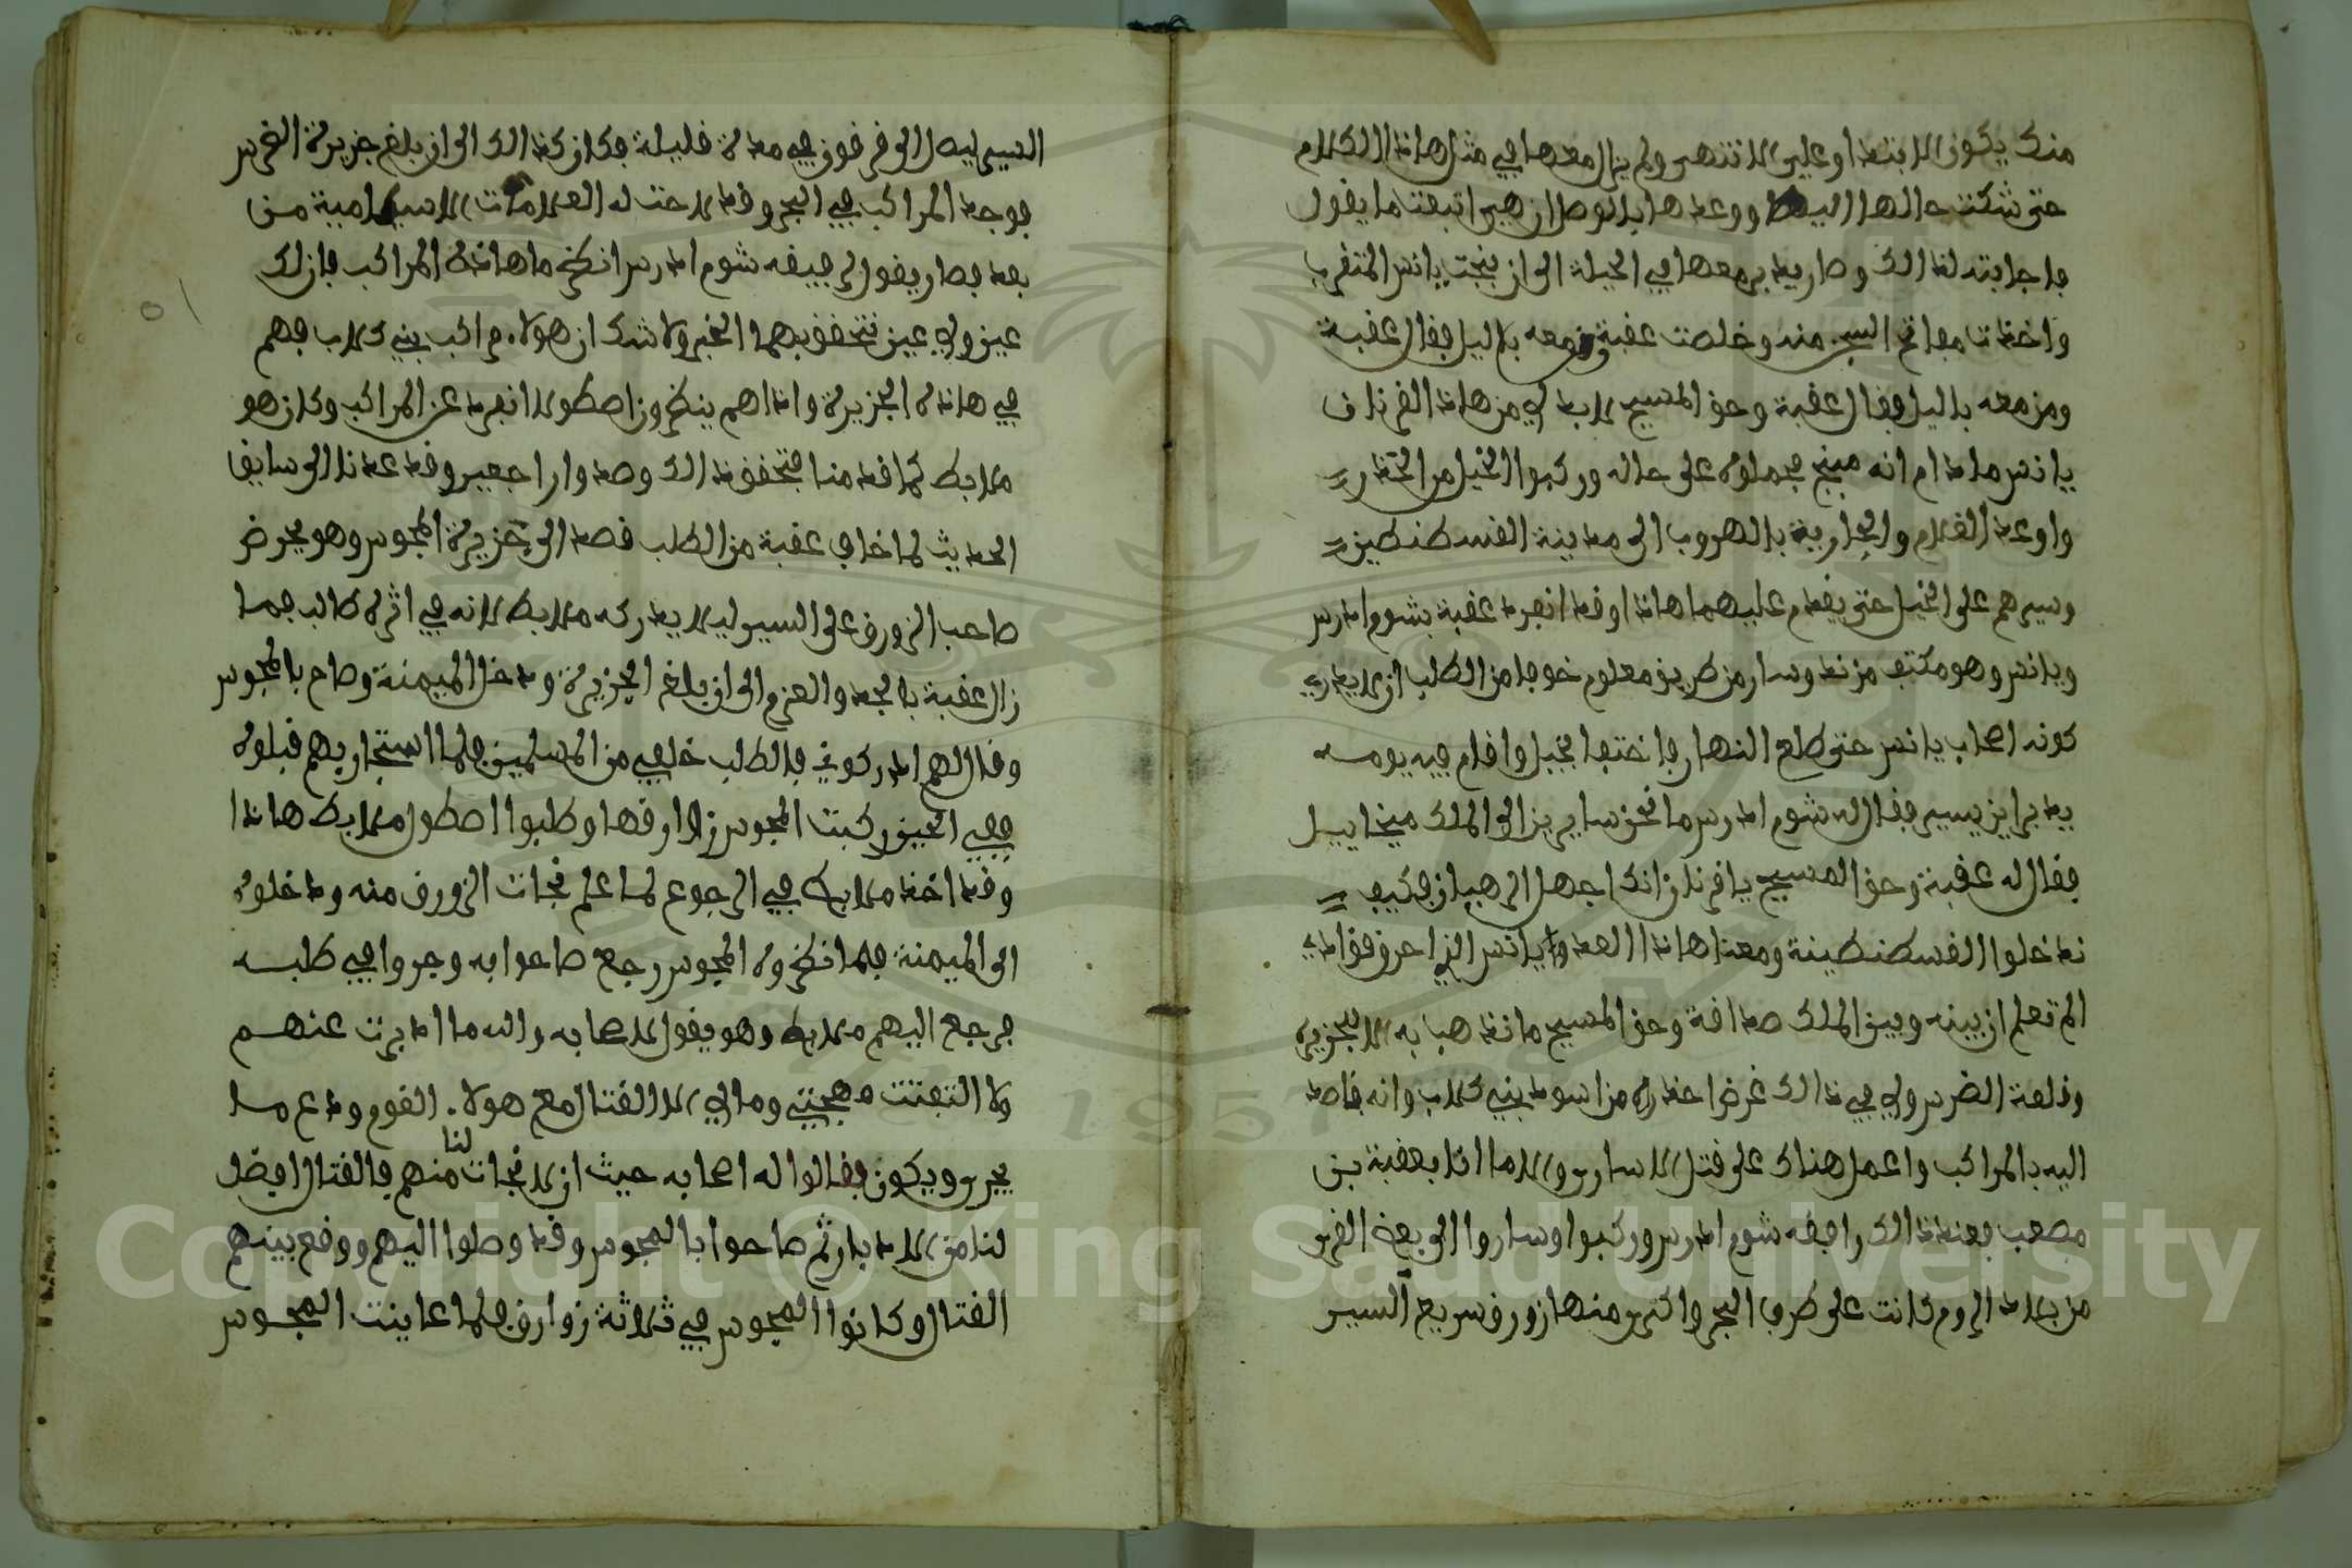 منك يكون الابتدا وعلي الانتهى ولم يزل معها في مثل هاذا الكلام
حتى شكت حالها اليه ووعدها بالوصل ان هي اتبعت ما يقول
فاجابته لذالك وصار يدبر معها في الحيلة الى ان بنجت يانس المتقرب
واخذت مفاتح السجن منه وخلصت عقبة ومن معه بالليل فقال عقبة
ومن معه بالليل فقال عقبة وحق المسيح لابد لي من هاذا القرنان
يانس مادام انه مبنج فحملوه على حاله وركبوا الخيل من الحدر
واوعد الغلام والجارية بالهروب الى مدينة القسطنطين
وسيرهم على الخيل حتى يقدم عليهما هاذا وقد انفرد عقبة بشوم ادرس
ويانس وهو مكتف مزند وسار من طريق معلوم خوفا من الطلب ان لا يدري
كونه اصحاب يانس حتى طلع النهار فاختفا بجبل واقام فيه يومه
يدبر اين يسير فقال له شوم ادرس ما نحن سايرين الى الملك ميخاييل
فقال له عقبة وحق المسيح يا قرنان انك اجهل الرهبان فكيف
ندخلوا القسطنطينة ومعنا هاذا العدو يانس الذي احرق فوادي
الم تعلم ان بينه وبين الملك صداقة وحق المسيح ما نذهبا به الا لجزيرة
وقلعة الضرس ولي في ذالك غرض اخذه من اسود بني كلاب وانه قاصد
اليه بالمراكب واعمل هناك على قتل الاسارى والا ما انا بعقبة بن
مصعب فعند ذالك وافقه شوم ادرس وركبوا وساروا الى بعض القرى
من بلاد الروم كانت على طرف البحر واكترى منها زورق سريع السير
اليسير ليصل الى قرقون في مدة قليلة فكان كذالك الى ان بلغ جزيرة الغرس
فوجد المراكب في البحر وقد لاحت له العلامات الاسلامية من
بعد فصار يقول لرفيقه شوم ادرس انظر ما هاذه المراكب فان لك
عين ولي عين نتحققهما الخبر ولا شك ان هولاء مراكب بني كلاب فهم
في هاذه الجزيرة واذا هم ينظرون اصطولا انفرد عن المراكب وكان هو
ملابط كما قدمنا فتحقق ذالك وصدوا راجعين وقد عدنا الى سايق
الحديث لما خاف عقبة من الطلب قصد الى جزيرة المجوس وهو يحرض
صاحب الزورق على السير ليلا يدركه ملابط لانه في اثره طالب فما
زال عقبة بالجد والعزم الى ان بلغ الجزيرة ودخل الميمنة وصاح بالمجوس
وقال لهم ادركوني فالطلب خلفي من المسلمين فلما استجار بهم قبلوه
ففي الحين ركبت المجوس زوارقها وطلبوا اصطول ملابط هاذا
وقد اخذ ملابط في الرجوع لما علم نجات الزورق منه ودخلوه
الى الميمنة فلما نظروه المجوس رجع صاحوا به وجروا في طلبه
فرجع اليهم ملابط وهو يقول لاصحابه والله ما ادبرت عنهم
ولا التفتت مهجتي وما لي الا القتال مع هولاء القوم ودع ما
يجرى ويكون فقالوا له اصحابه حيث ان لا نجات لنا منهم فالقتال افضل
لنا من الادبار ثم صاحوا بالمجوس وقد وصلوا اليهم ووقع بينهم
القتال وكانوا المجوس في ثلاثة زوارق فلما عاينت المجوس